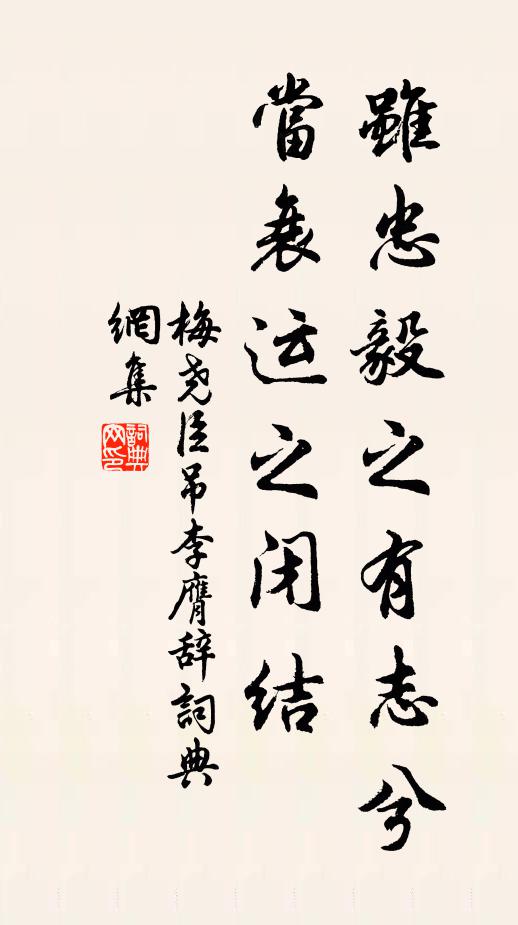 雖忠毅之有志兮
當衰运之闭结
梅尧臣吊李膺辞詞典
網集
詞典
网印